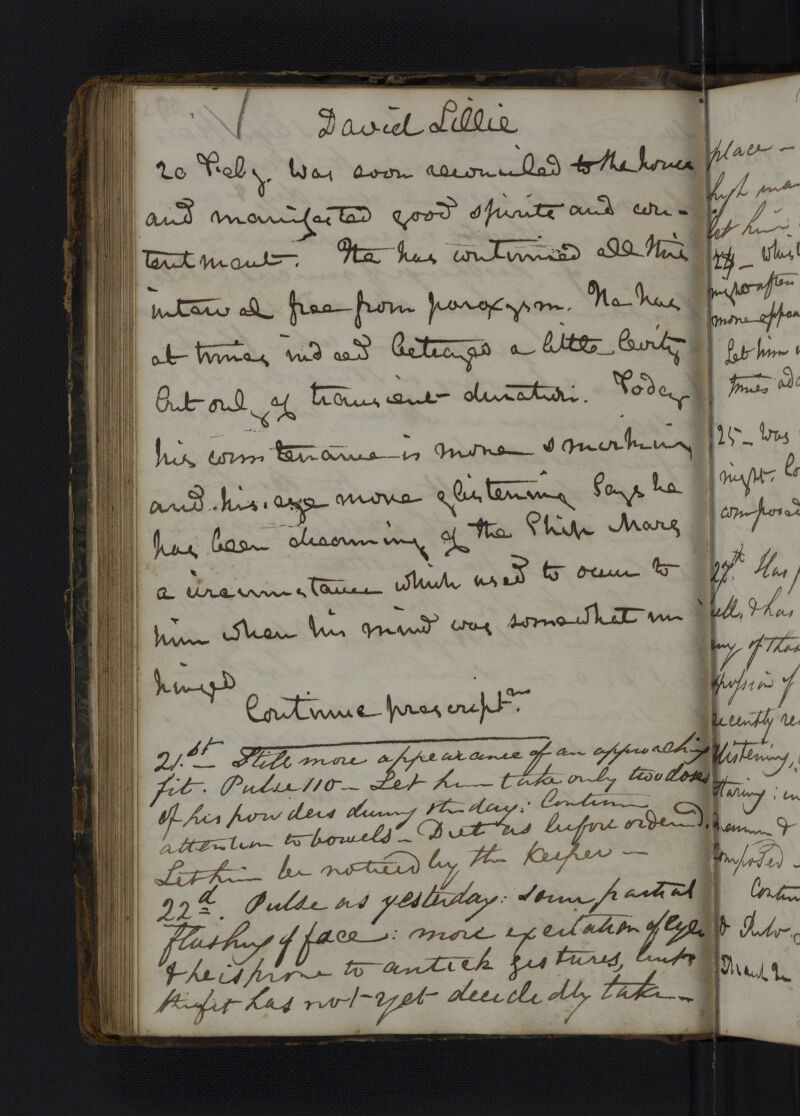 David Lillie
20 Feby. Was soon reconciled to the house
and manifested good spirits and con-
tentment. He has continued all this
interval free from paroxysm. He has
at times indeed betrayed a little levity
but only of transient duration. Today
his countenance is more smirking
and his eye more glistening Says he
has been dreaming of the Ship Mars
a circumstance which used to occur to
him when his mind was somewhat un
hinged
Continue prescriptns.
21st Still more appearance of an approaching
fit. Pulse 110 - Let him take only two doses
of his powders during the day: Continue
attention to bowels - Diet as before ordered.
Let him be noticed by the Keeper -
22d. Pulse as yesterday: some partial
flushing of face: more excitation of eye
& he is prone to antick gestures, but
the fit has not yet decidedly take-
place -
high
let him
24 -
more
Let him
times
25 - Was
night.
composed
27th. Has
& has
of
of
recently
glistening,
staring: in
&
composed -
&